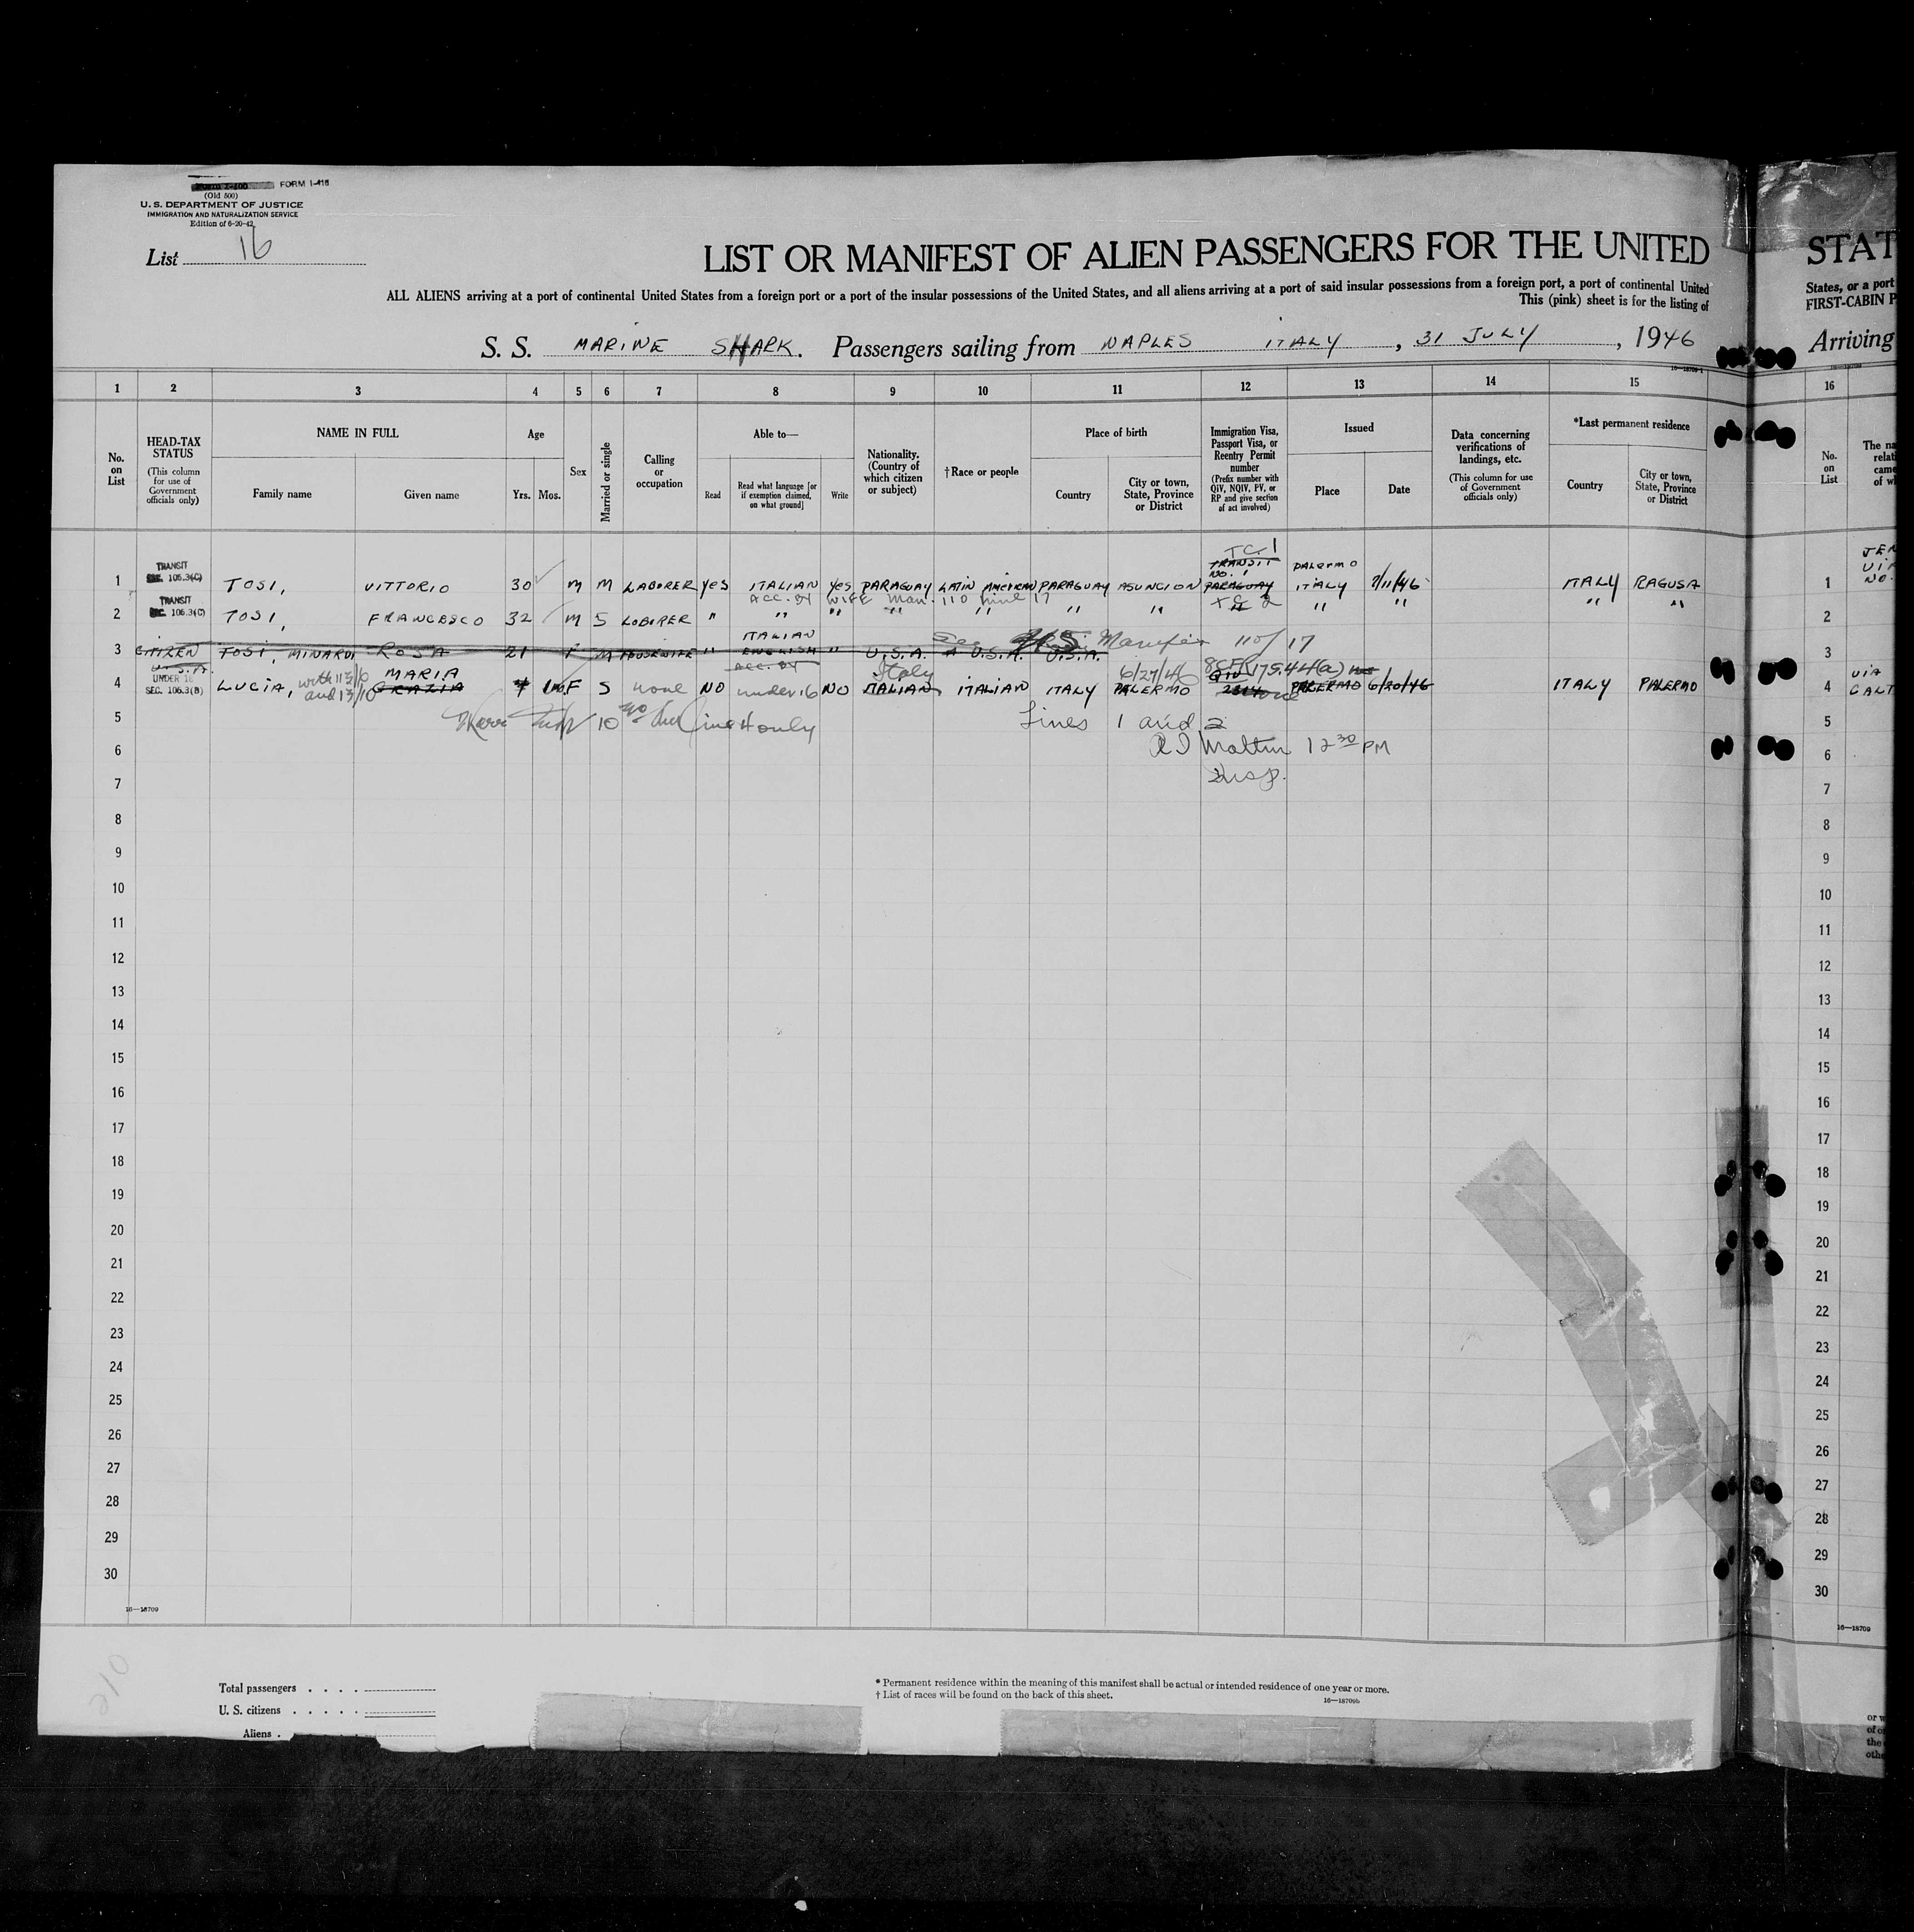 FORM I-415
(Old 500)
U. S. DEPARTMENT OF JUSTICE
IMMIGRATION AND NATURALIZATION SERVICE
Edition of 6-20-42
List 16
LIST OR MANIFEST OF ALIEN PASSENGERS FOR THE UNITED
STAT
ALL ALIENS arriving at a port of continental United States from a foreign port or a port of the insular possessions of the United States, and all aliens arriving at a port of said insular possessions from a foreign port, a port of continental United
States, or a port
This (pink) sheet is for the listing of
FIRST-CABIN P
S. S. MARINE SHARK. Passengers sailing from NAPLES ITALY, 31 JULY, 1946
Arriving
1 2 3 4 5 6 7 8 9 10 11 12 13 14 15 16
No. on List
HEAD-TAX STATUS (This column for use of Government officials only)
NAME IN FULL
Family name
Given name
Age
Yrs. Mos.
Sex
Married or single
Calling or occupation
Able to—
Read
Read what language [or if exemption claimed, on what ground]
Write
Nationality. (Country of which citizen or subject)
†Race or people
Place of birth
Country
City or town, State, Province or District
Immigration Visa, Passport Visa, or Reentry Permit number (Prefix number with QIV, NQIV, PV, or RP and give section of act involved)
Issued
Place
Date
Data concerning verifications of landings, etc. (This column for use of Government officials only)
*Last permanent residence
Country
City or town, State, Province or District
No. on List
TC 1
TRANSIT TRANSIT PALERMO
SEC. 105.3(C) NO. 1
1 TOSI, VITTORIO 30 M M LABORER yes ITALIAN yes PARAGUAY LATIN AMERICAN PARAGUAY ASUNCION PARAGUAY ITALY 7/11/46 ITALY RAGUSA 1
ACC. BY WIFE Man. 110 line 17
TRANSIT
SEC. 105.3(C) TC 2
2 TOSI, FRANCESCO 32 M S LOBORER " " " " " " " " " " " 2
ITALIAN See Manifest 110/17
3 CITIZEN TOSI, MINARDI ROSA 21 F M HOUSEWIFE " ENGLISH " U.S.A. U.S.A. U.S.A. 3
U.S.A. ACC. BY
UNDER 16 with 113/6 MARIA Italy 6/27/46 8CFR 175.44(a)
SEC. 105.3(B) and 13/10 QIV
4 LUCIA, GRAZIA F S none NO under 16 NO ITALIAN ITALIAN ITALY PALERMO PALERMO 6/20/46 ITALY PALERMO 4
5 10 line 4 only Lines 1 and 2 5
6 12 30 PM 6
7 7
8 8
9 9
10 10
11 11
12 12
13 13
14 14
15 15
16 16
17 17
18 18
19 19
20 20
21 21
22 22
23 23
24 24
25 25
26 26
27 27
28 28
29 29
30 30
16—18709
16—18709
Total passengers
U. S. citizens
Aliens
* Permanent residence within the meaning of this manifest shall be actual or intended residence of one year or more.
† List of races will be found on the back of this sheet.
16—18709b